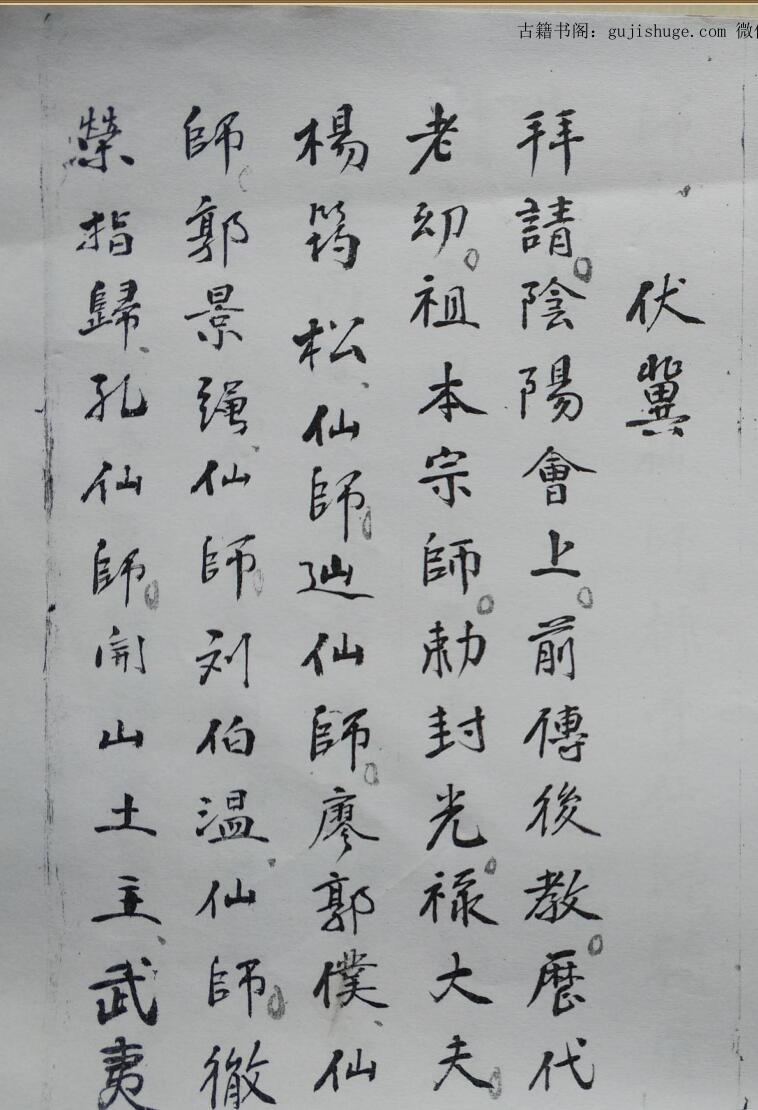 古籍书阁：gujishuge.com 微信
伏冀
拜請陰陽會上前傳後教歷代
老幼祖本宗師勅封光祿大夫
楊筠松仙師廵仙師廖郭僕仙
師郭景鸾仙師刘伯温仙師徹
榮指歸孔仙師開山土主武夷